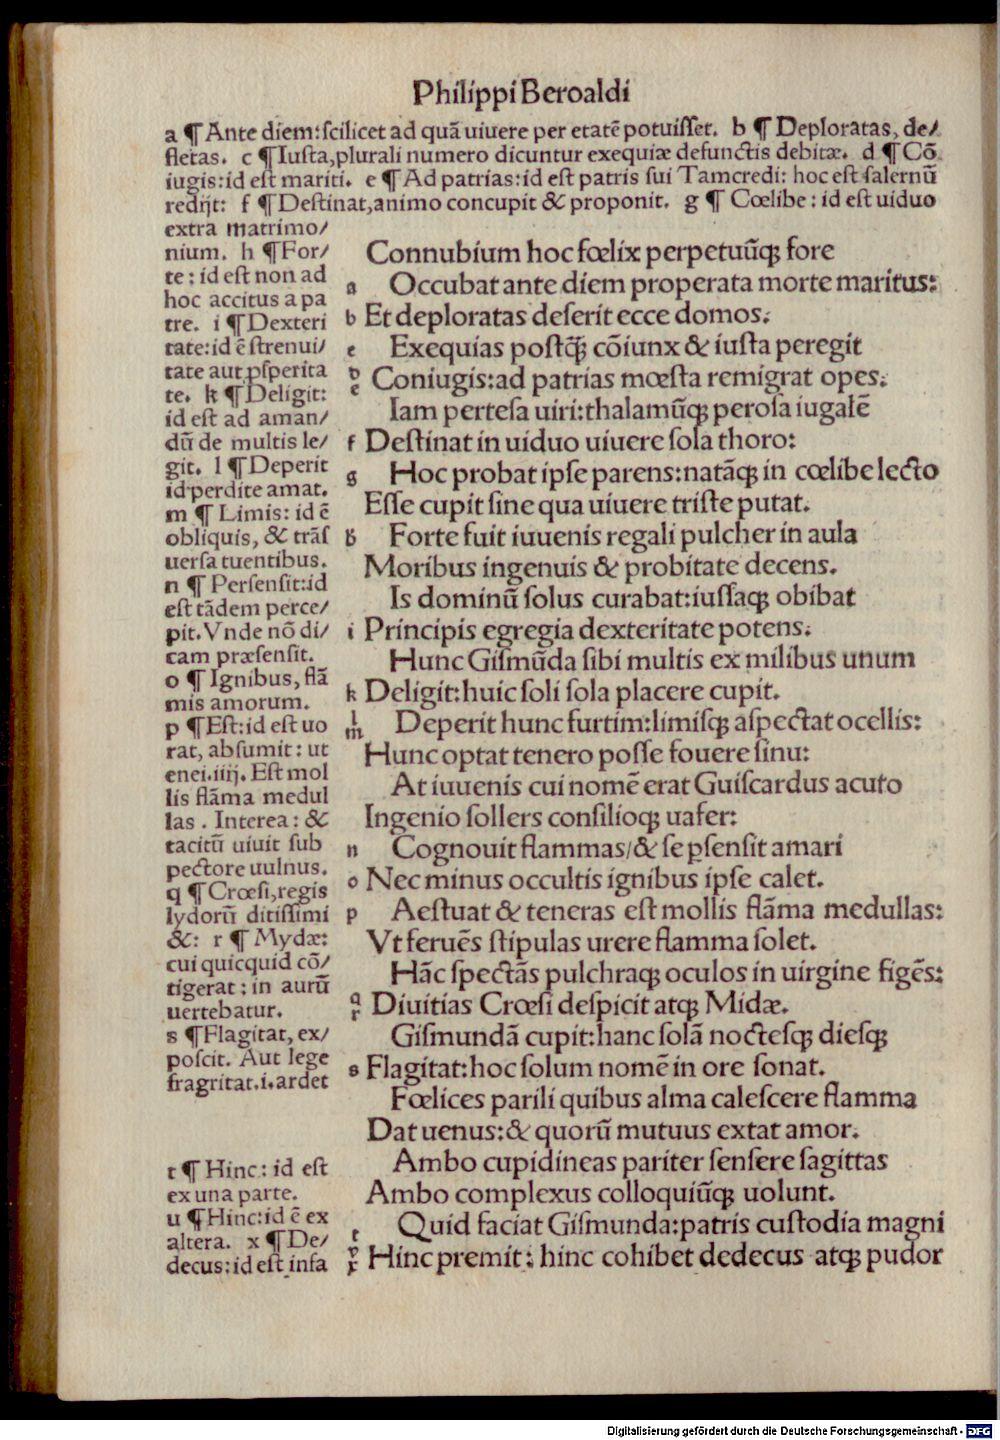 Philippi Beroaldi
a ¶ Ante diem: ſcilicet ad quã uiuere per etatẽ potuiſſet. b ¶ Deploratas, de/
fletas. c ¶ Iuſta, plurali numero dicuntur exequiæ defunctis debitæ. d ¶ Cõ
iugis: id eſt mariti. e ¶ Ad patrias: id eſt patris ſui Tamcredi: hoc eſt ſalernũ
redijt: f ¶ Deſtinat, animo concupit & proponit. g ¶ Cœlibe: id eſt uiduo
extra matrimo/
nium. h ¶ For/
te: id eſt non ad
hoc accitus a pa
tre. i ¶ Dexteri
tate: id ẽ ſtrenui/
tate aut ꝓſperita
te. k ¶ Deligit:
id eſt ad aman/
dũ de multis le/
git. l ¶ Deperit
id perdite amat.
m ¶ Limis: id ẽ
obliquis, & trãſ
uerſa tuentibus.
n ¶ Perſenſit: id
eſt tãdem perce/
pit. Vnde nõ di/
cam præſenſit.
o ¶ Ignibus, flã
mis amorum.
p ¶ Eſt: id eſt uo
rat, abſumit: ut
enei. iiij. Eſt mol
lis flãma medul
las. Interea: &
tacitũ uiuit ſub
pectore uulnus.
q ¶ Crœſi, regis
lydorũ ditiſſimi
&: r ¶ Mydæ:
cui quicquid cõ/
tigerat: in aurũ
uertebatur.
s ¶ Flagitat, ex/
poſcit. Aut lege
fragritat. i. ardet
t ¶ Hinc: id eſt
ex una parte.
u ¶ Hinc: id ẽ ex
altera. x ¶ De/
decus: id eſt infa
Connubium hoc fœlix perpetuũq; fore
a Occubat ante diem properata morte maritus:
b Et deploratas deſerit ecce domos.
c Exequias poſtq̃ cõiunx & iuſta peregit
d e Coniugis: ad patrias mœſta remigrat opes.
Iam perteſa uiri: thalamũq; peroſa iugalẽ
f Deſtinat in uiduo uiuere ſola thoro:
g Hoc probat ipſe parens: natãq; in cœlibe lecto
Eſſe cupit ſine qua uiuere triſte putat.
h Forte fuit iuuenis regali pulcher in aula
Moribus ingenuis & probitate decens.
Is dominũ ſolus curabat: iuſſaq; obibat
i Principis egregia dexteritate potens.
Hunc Giſmũda ſibi multis ex milibus unum
k Deligit: huic ſoli ſola placere cupit.
l m Deperit hunc furtim: limiſq; aſpectat ocellis:
Hunc optat tenero poſſe fouere ſinu:
At iuuenis cui nomẽ erat Guiſcardus acuto
Ingenio ſollers conſilioq; uafer:
n Cognouit flammas/& ſe ꝑſenſit amari
o Nec minus occultis ignibus ipſe calet.
p Aeſtuat & teneras eſt mollis flãma medullas:
Vt feruẽs ſtipulas urere flamma ſolet.
Hãc ſpectãs pulchraq; oculos in uirgine figẽs:
q r Diuitias Crœſi deſpicit atq; Midæ.
Giſmundã cupit: hanc ſolã nocteſq; dieſq;
s Flagitat: hoc ſolum nomẽ in ore ſonat.
Fœlices parili quibus alma caleſcere flamma
Dat uenus: & quorũ mutuus extat amor.
Ambo cupidineas pariter ſenſere ſagittas
Ambo complexus colloquiũq; uolunt.
Quid faciat Giſmunda: patris cuſtodia magni
t v x Hinc premit: hinc cohibet dedecus atq; pudor
Digitalisierung gefördert durch die Deutsche Forschungsgemeinschaft - DFG